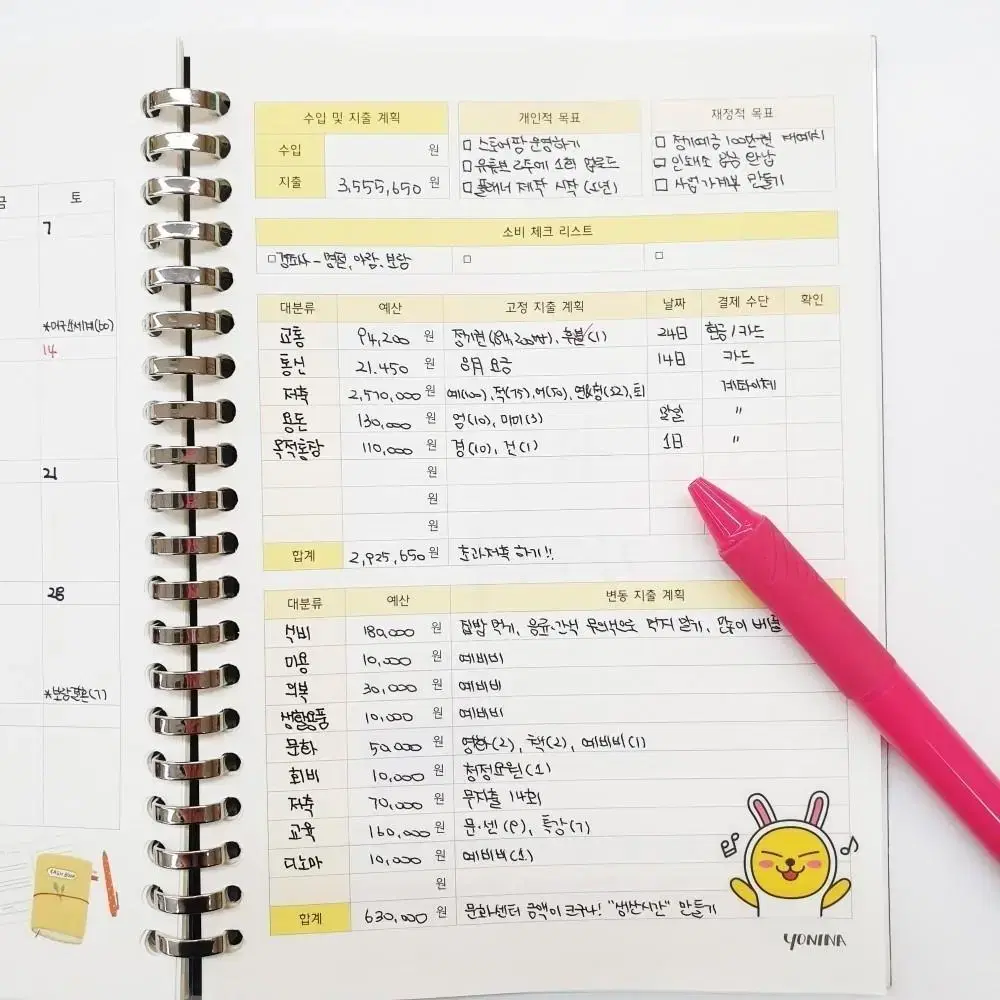 금 토
7
*마구쓰세계(50)
14
21
28
CASH BOOK
수입 및 지출 계획
수입 원
지출 3,555,650 원
개인적 목표
□ 스토어팜 운영하기
□ 유튜브 2주에 1회 업로드
□ 플래너 제작 시작 (1년)
재정적 목표
□ 정기예금 100만원 재예치
□ 인쇄소 잔금 완납
□ 사업가계부 만들기
소비 체크 리스트
□ 경조사 - 명절, 아람, 보람 □ □
대분류 예산 고정 지출 계획 날짜 결제 수단 확인
교통 94,200 원 정기권 (84,200원), 후불(1) 24日 현금/카드
통신 21.450 원 8月 요금 14日 카드
저축 2,570,000 원 예(100), 적(75), 어(50), 연&청(32), 퇴 계좌이체
용돈 130,000 원 엄(10), 미미(3) 말일 "
목적통장 110,000 원 경(10), 건(1) 1日 "
원
원
원
합계 2,925,650 원 초과저축 하기!!
대분류 예산 변동 지출 계획
식비 180,000 원 집밥 먹기, 음료·간식 무의식으로 먹지 말기, 많이
미용 10,000 원 예비비
의복 30,000 원 예비비
생활용품 10,000 원 예비비
문화 50,000 원 영화(2), 책(2), 예비비(1)
회비 10,000 원 청정요원(1)
저축 70,000 원 무지출 14회
교육 160,000 원 문·센(9), 특강(7)
디노마 10,000 원 예비비(1)
원
합계 630,000 원 문화센터 금액이 크구나! "생산시간" 만들기
YONINA